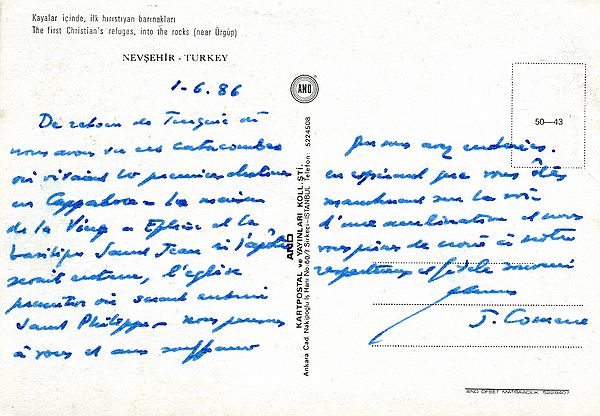 Kayalar içinde, ilk hıristıyan barınakları
The first Christian's refuges, into the rocks (near Ürgüp)
NEVŞEHİR - TURKEY
1-6.86
De retour de Turquie où
nous avons vu ces catacombes
où vivaient les premiers chrétiens
en Cappadoce - La maison
de la Vierge à Ephèse et la
basilique Saint Jean où l'apôtre
serait enterré, l'église
où serait enterré
Saint Philippe - nous pensons
à vous et aux souffrances
AND
AND
KARTPOSTAL ve YAYINLARI KOLL. ŞTİ.
Ankara Cad. Nakipoğlu İş Hanı No:46/7 Sirkeci-İSTANBUL Telefon: 5224508
50—43
que vous avez endurées.
en espérant que vous êtes
maintenant sur la voie
d'une amélioration et nous
vous prions de croire à notre
respectueux et fidèle souvenir
J.
AND OFSET MATBAACILIK 5220407